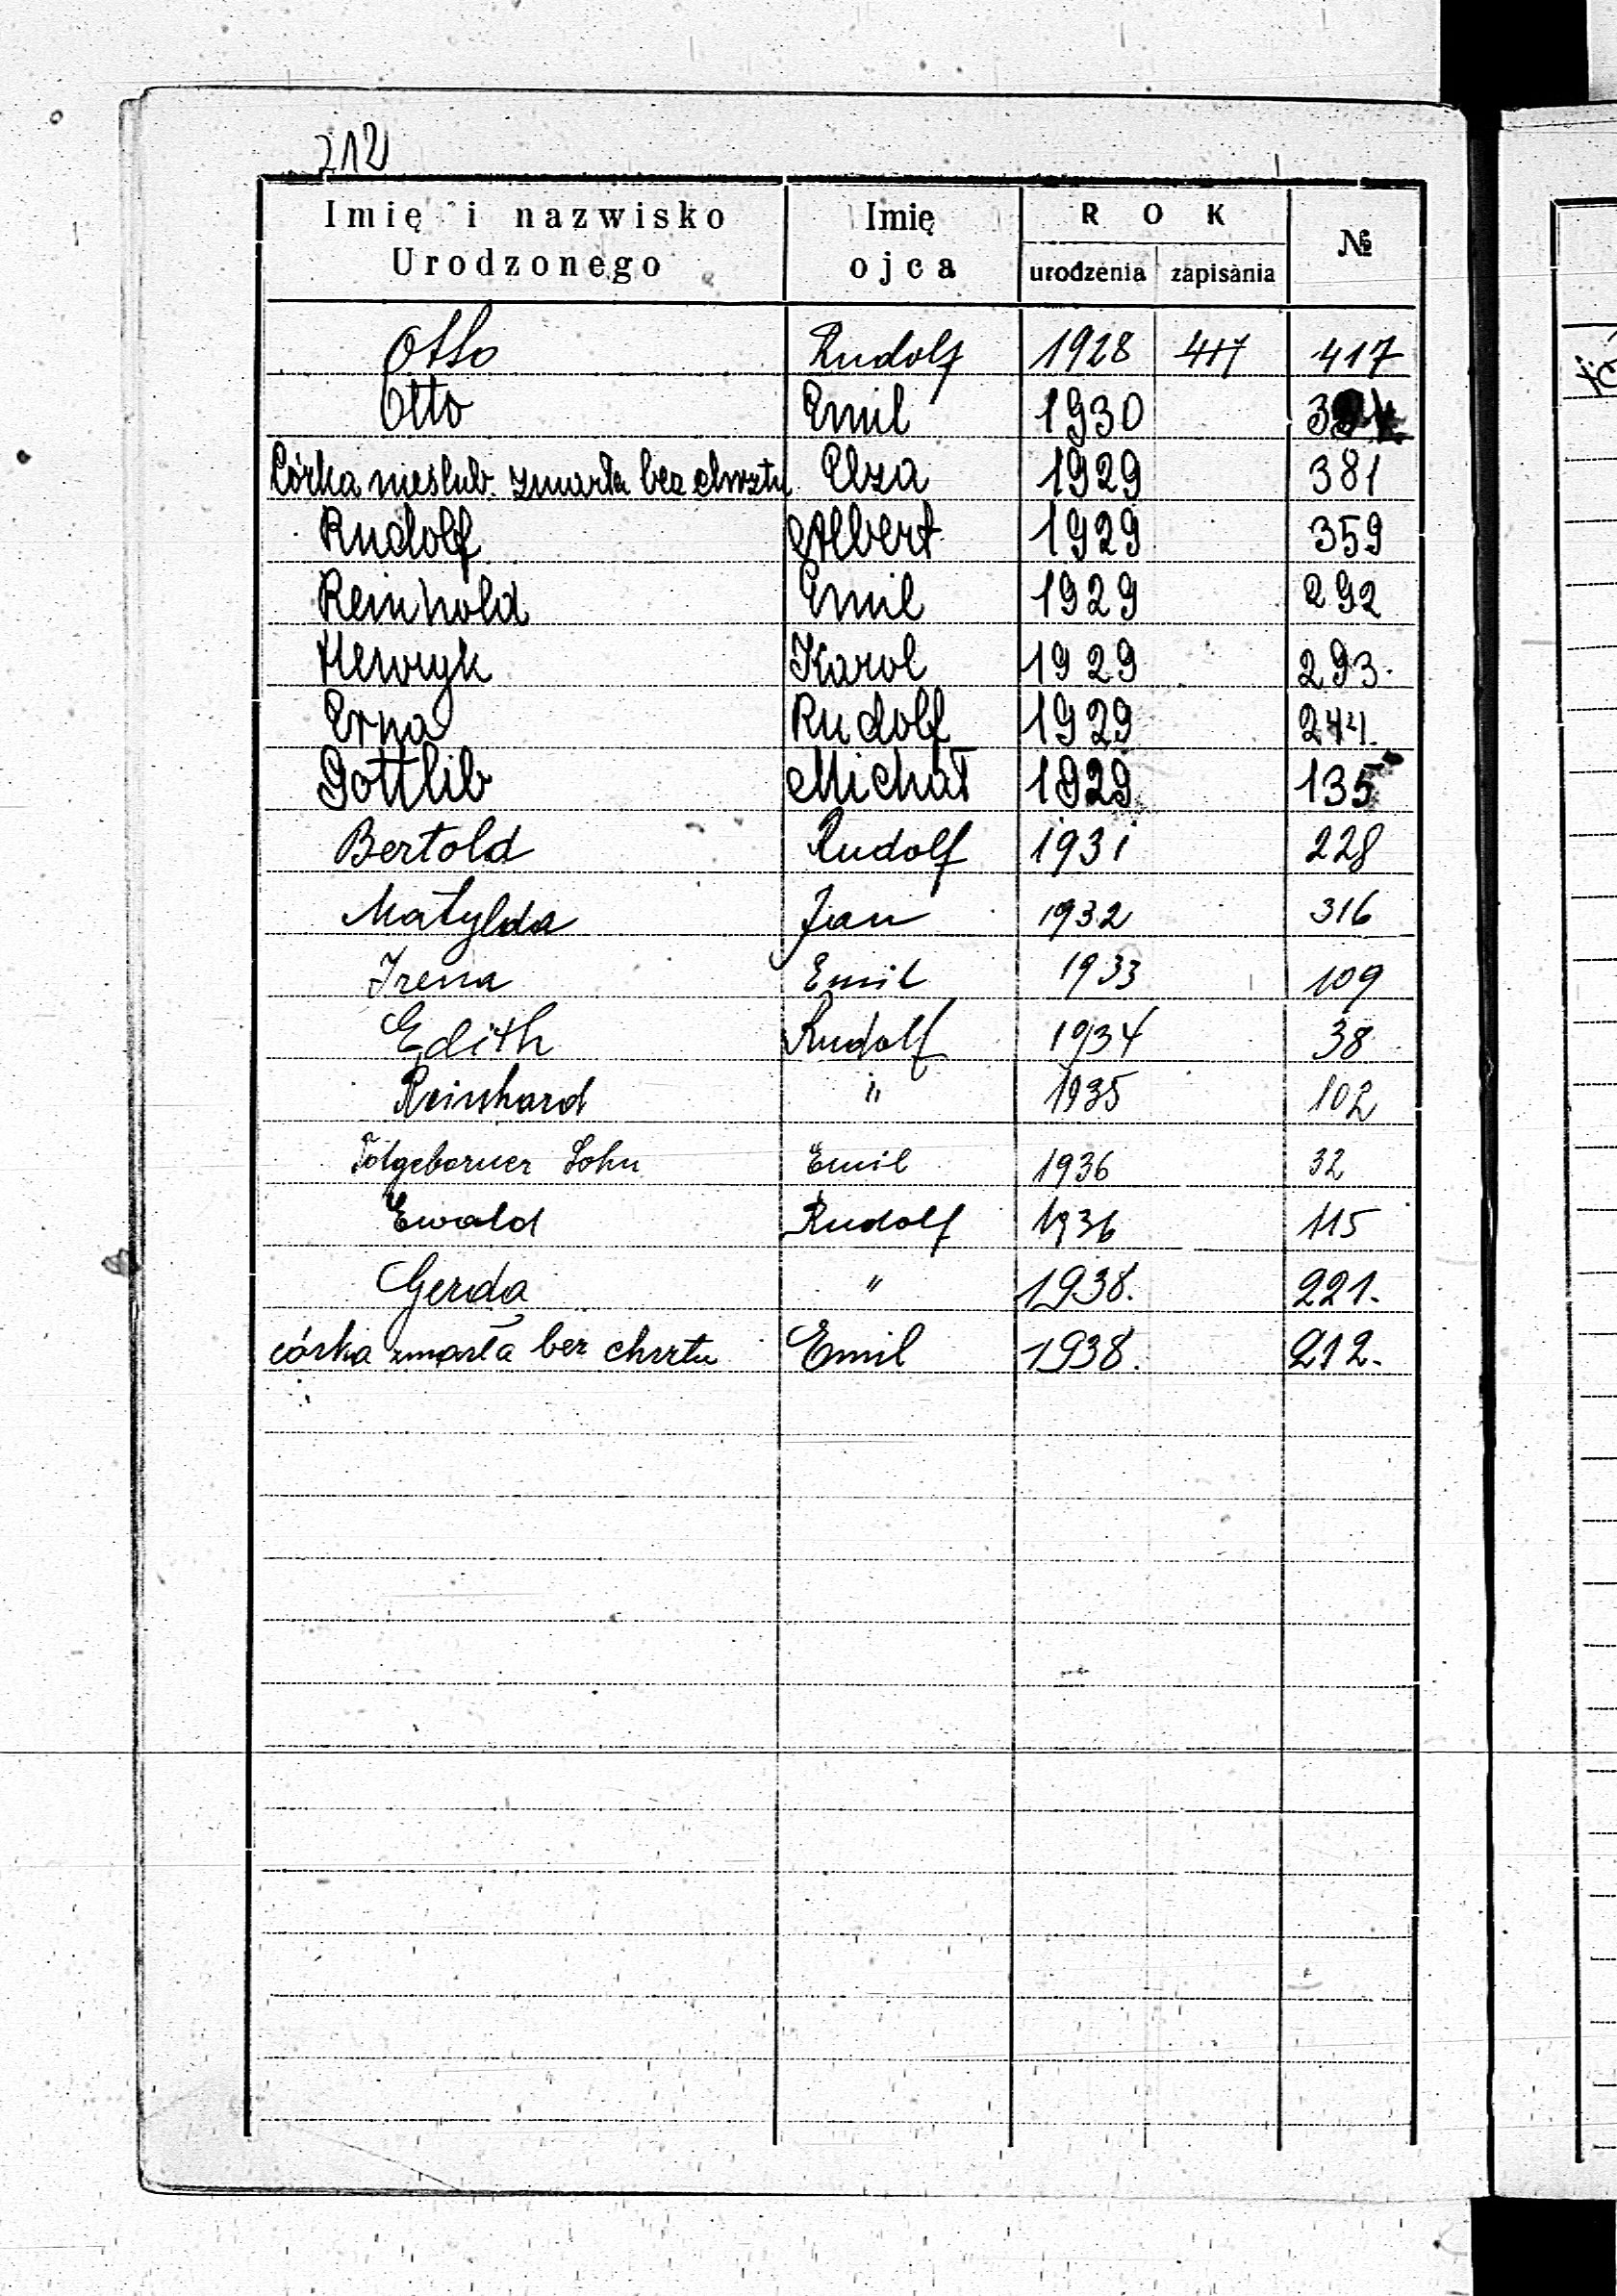 212
Imię i nazwisko Urodzonego | Imię ojca | ROK urodzenia | zapisania | №
Otto | Rudolf | 1928 | 417 | 417
Otto | Emil | 1930
Córka nieślub. zmarła bez chrztu | Elza | 1929 | 381
Rudolf | Albert | 1929 | 359
Reinhold | Emil | 1929 | 292
Henryk | Karol | 1929 | 293.
Erna | Rudolf | 1929 | 244.
Gottlib | Michał | 1929 | 135
Bertold | Rudolf | 1931 | 228
Matylda | Jan | 1932 | 316
Irena | Emil | 1933 | 109
Edith | Rudolf | 1934 | 38
Reinhard | " | 1935 | 102
Totgeborner Sohn | Emil | 1936 | 32
Ewald | Rudolf | 1936 | 115
Gerda | " | 1938. | 221.
córka zmarła bez chrztu | Emil | 1938. | 212.